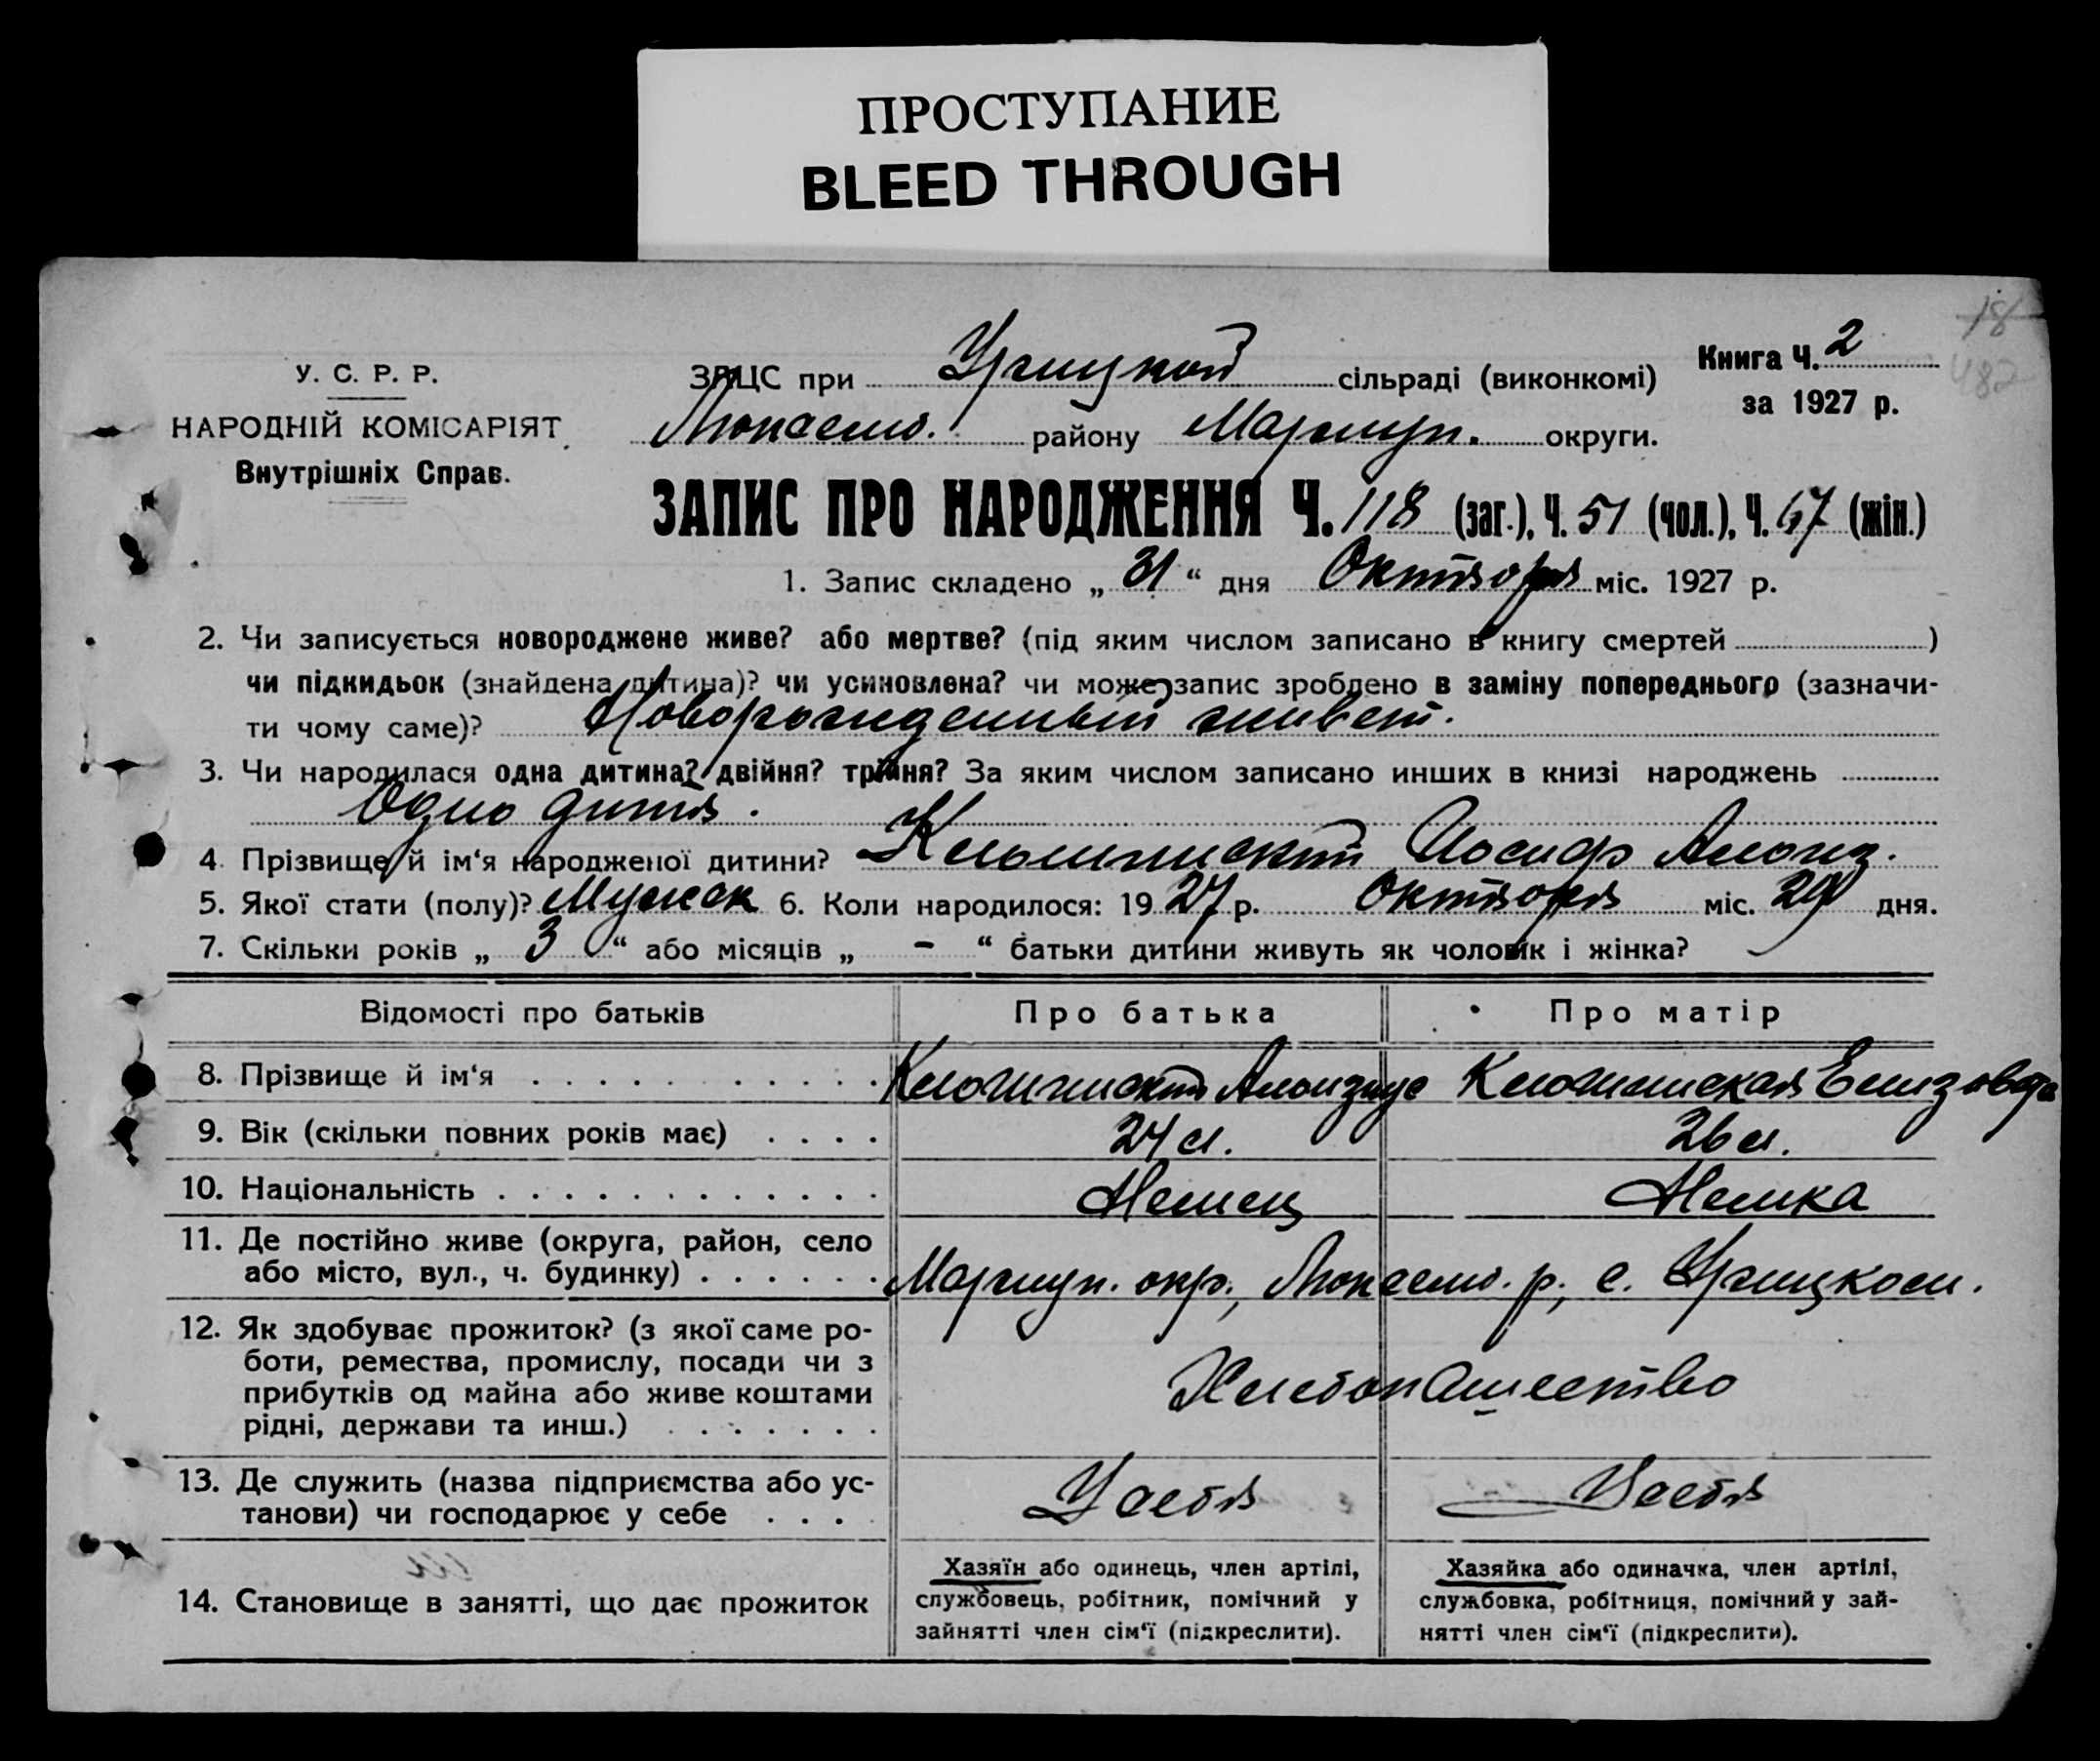 ПРОСТУПАНИЕ
BLEED THROUGH
18
482
У. С. Р. Р.
НАРОДНІЙ КОМІСАРІЯТ
Внутрішніх Справ.
ЗАЦС при Урицкой сільраді (виконкомі)
Люксемб. району Мариуп. округи.
Книга Ч. 2
за 1927 р.
ЗАПИС ПРО НАРОДЖЕННЯ Ч. 118 (заг.), Ч. 51 (чол.), Ч. 67 (жін.)
1. Запис складено „ 31 “ дня Октября міс. 1927 р.
2. Чи записується новороджене живе? або мертве? (під яким числом записано в книгу смертей )
чи підкидьок (знайдена дитина)? чи усиновлена? чи може запис зроблено в заміну попереднього (зазначи-
ти чому саме)? Новорожденный живет.
3. Чи народилася одна дитина? двійня? трійня? За яким числом записано инших в книзі народжень
Одно дитя.
4. Прізвище й ім‘я народженої дитини? Иосиф Алоиз.
5. Якої стати (полу)? Мужск 6. Коли народилося: 1927 р. Октября міс. 29 дня.
7. Скільки років „ 3 “ або місяців „ - “ батьки дитини живуть як чоловік і жінка?
Відомості про батьків Про батька Про матір
8. Прізвище й ім‘я Алоизиус Елизавета
9. Вік (скільки повних років має) 24 л. 26 л.
10. Національність Немец Немка
11. Де постійно живе (округа, район, село
або місто, вул., ч. будинку) Мариуп. окр., Люксемб. р., с. Урицком.
12. Як здобуває прожиток? (з якої саме ро-
боти, ремества, промислу, посади чи з
прибутків од майна або живе коштами
рідні, держави та инш.) Хлебопашество
13. Де служить (назва підприємства або ус-
танови) чи господарює у себе У себя У себя
14. Становище в занятті, що дає прожиток
Хазяїн або одинець, член артілі,
службовець, робітник, помічний у
зайнятті член сім‘ї (підкреслити).
Хазяйка або одиначка, член артілі,
службовка, робітниця, помічний у зай-
нятті член сім‘ї (підкреслити).